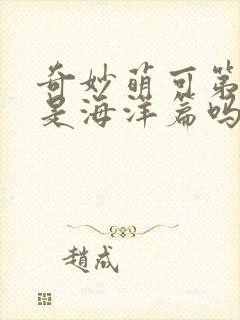 奇妙萌可第
是海洋篇吗
趙成